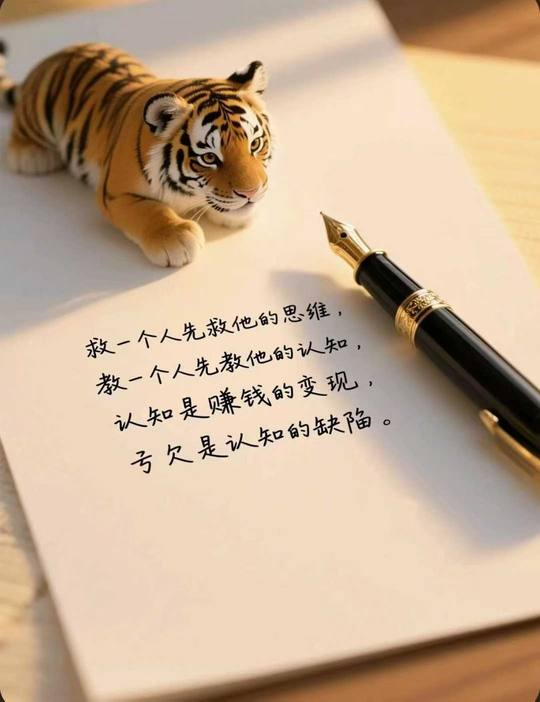 救一个人先救他的思维，
教一个人先教他的认知，
认知是赚钱的变现，
亏欠是认知的缺陷。